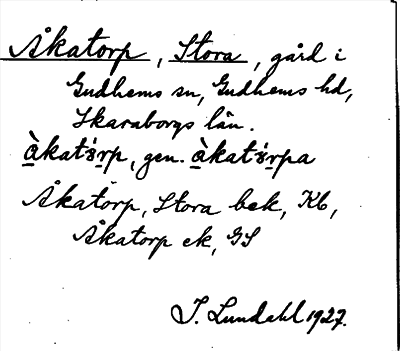 Åkatorp, Stora, gård i
Gudhems sn, Gudhems hd,
Skaraborgs län.
àkatórp, gen. àkatórpa
Åkatorp, Stora bek, Kb,
Åkatorp ek, GS
I. Lundahl 1927.